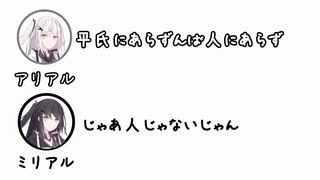 平氏にあらずんば人にあらず
アリアル
じゃあ人じゃないじゃん
ミリアル